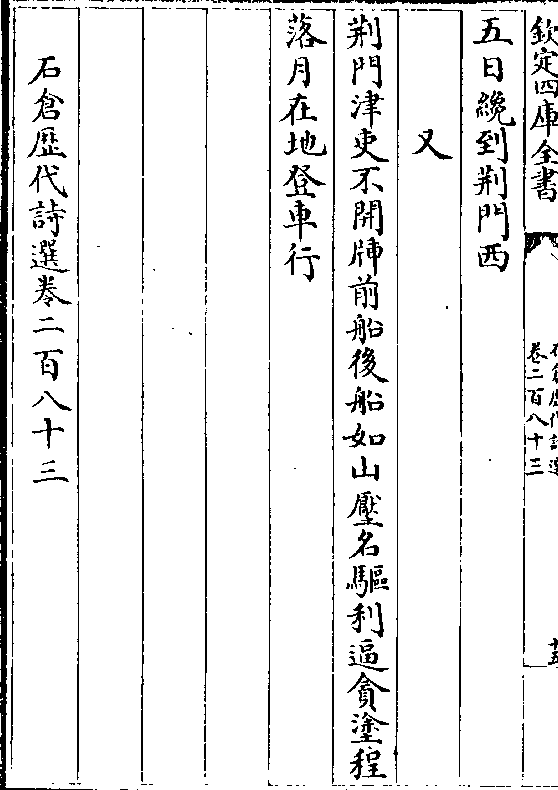 欽定四庫全書
石倉歴代詩選
卷二百八十三
十五
五日纔到荆門西
又
荆門津吏不開牐前船後船如山壓名驅利逼貪塗程
落月在地登車行
石倉歴代詩選卷二百八十三